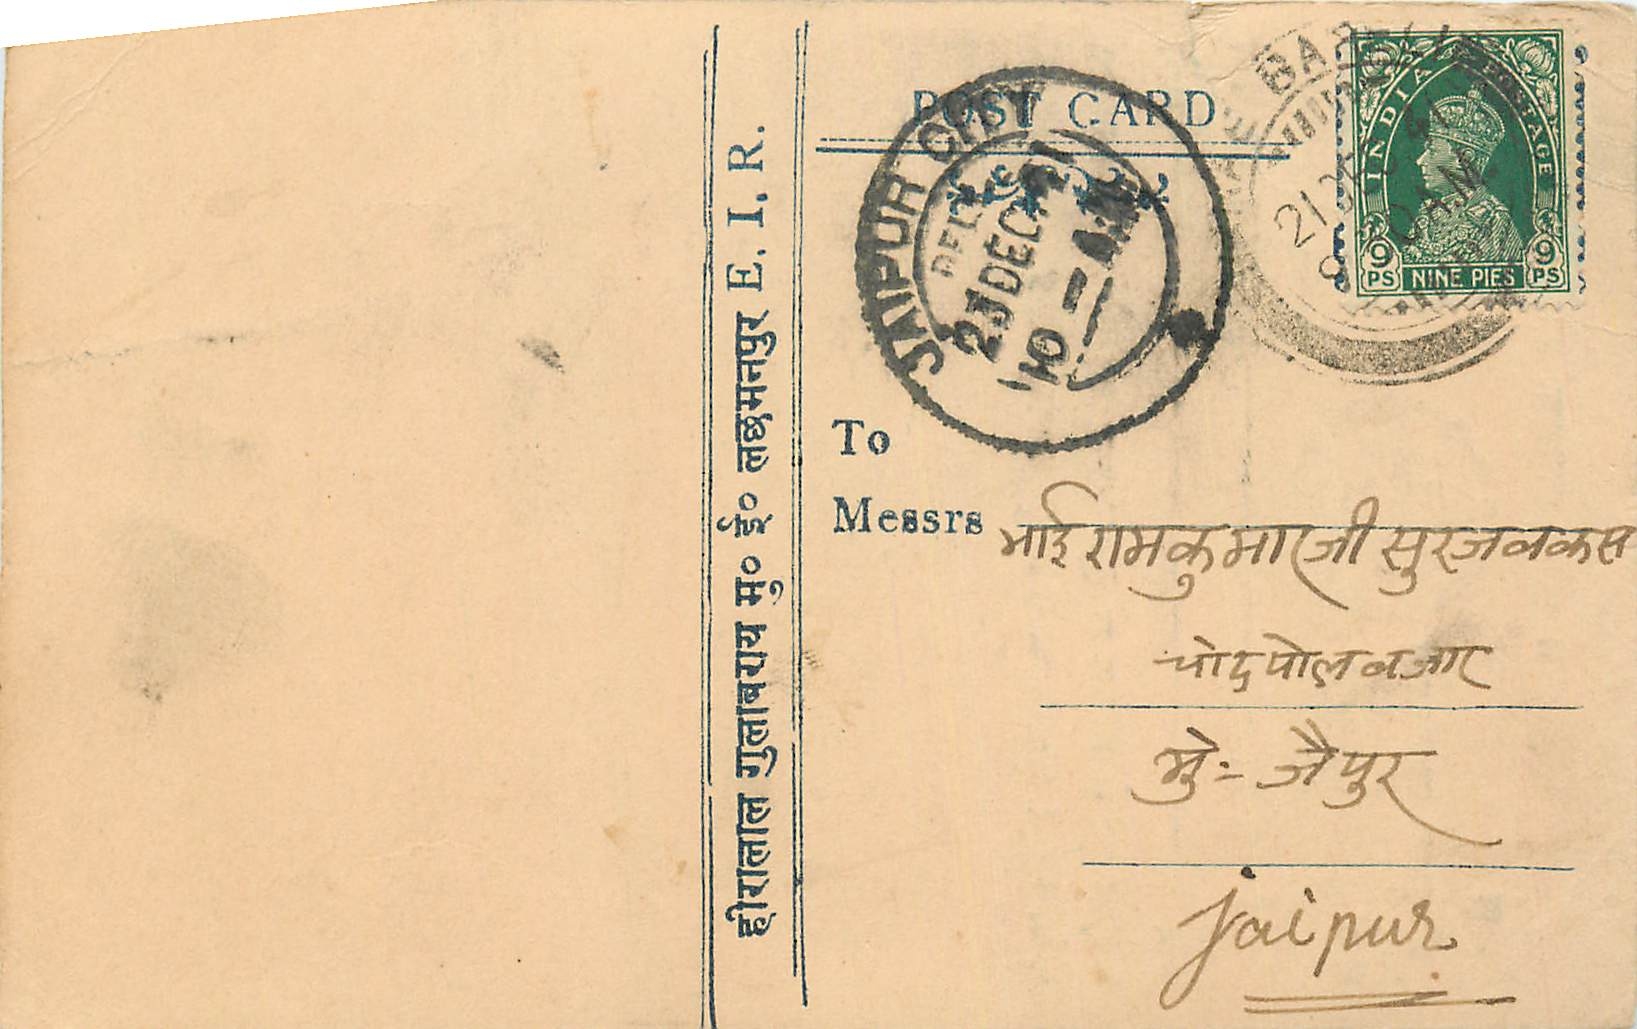 हीरालाल गुलाबराय मु० ई० लछमनपुर E. I. R.
POST CARD
JAIPUR CITY
23 DEC 41
10 - AM
21 DEC 41
INDIA POSTAGE
9 PS NINE PIES 9 PS
To
Messrs भाई रामकुमारजी सुरजबकस
चांदपोल बजार
मु:- जैपुर
Jaipur